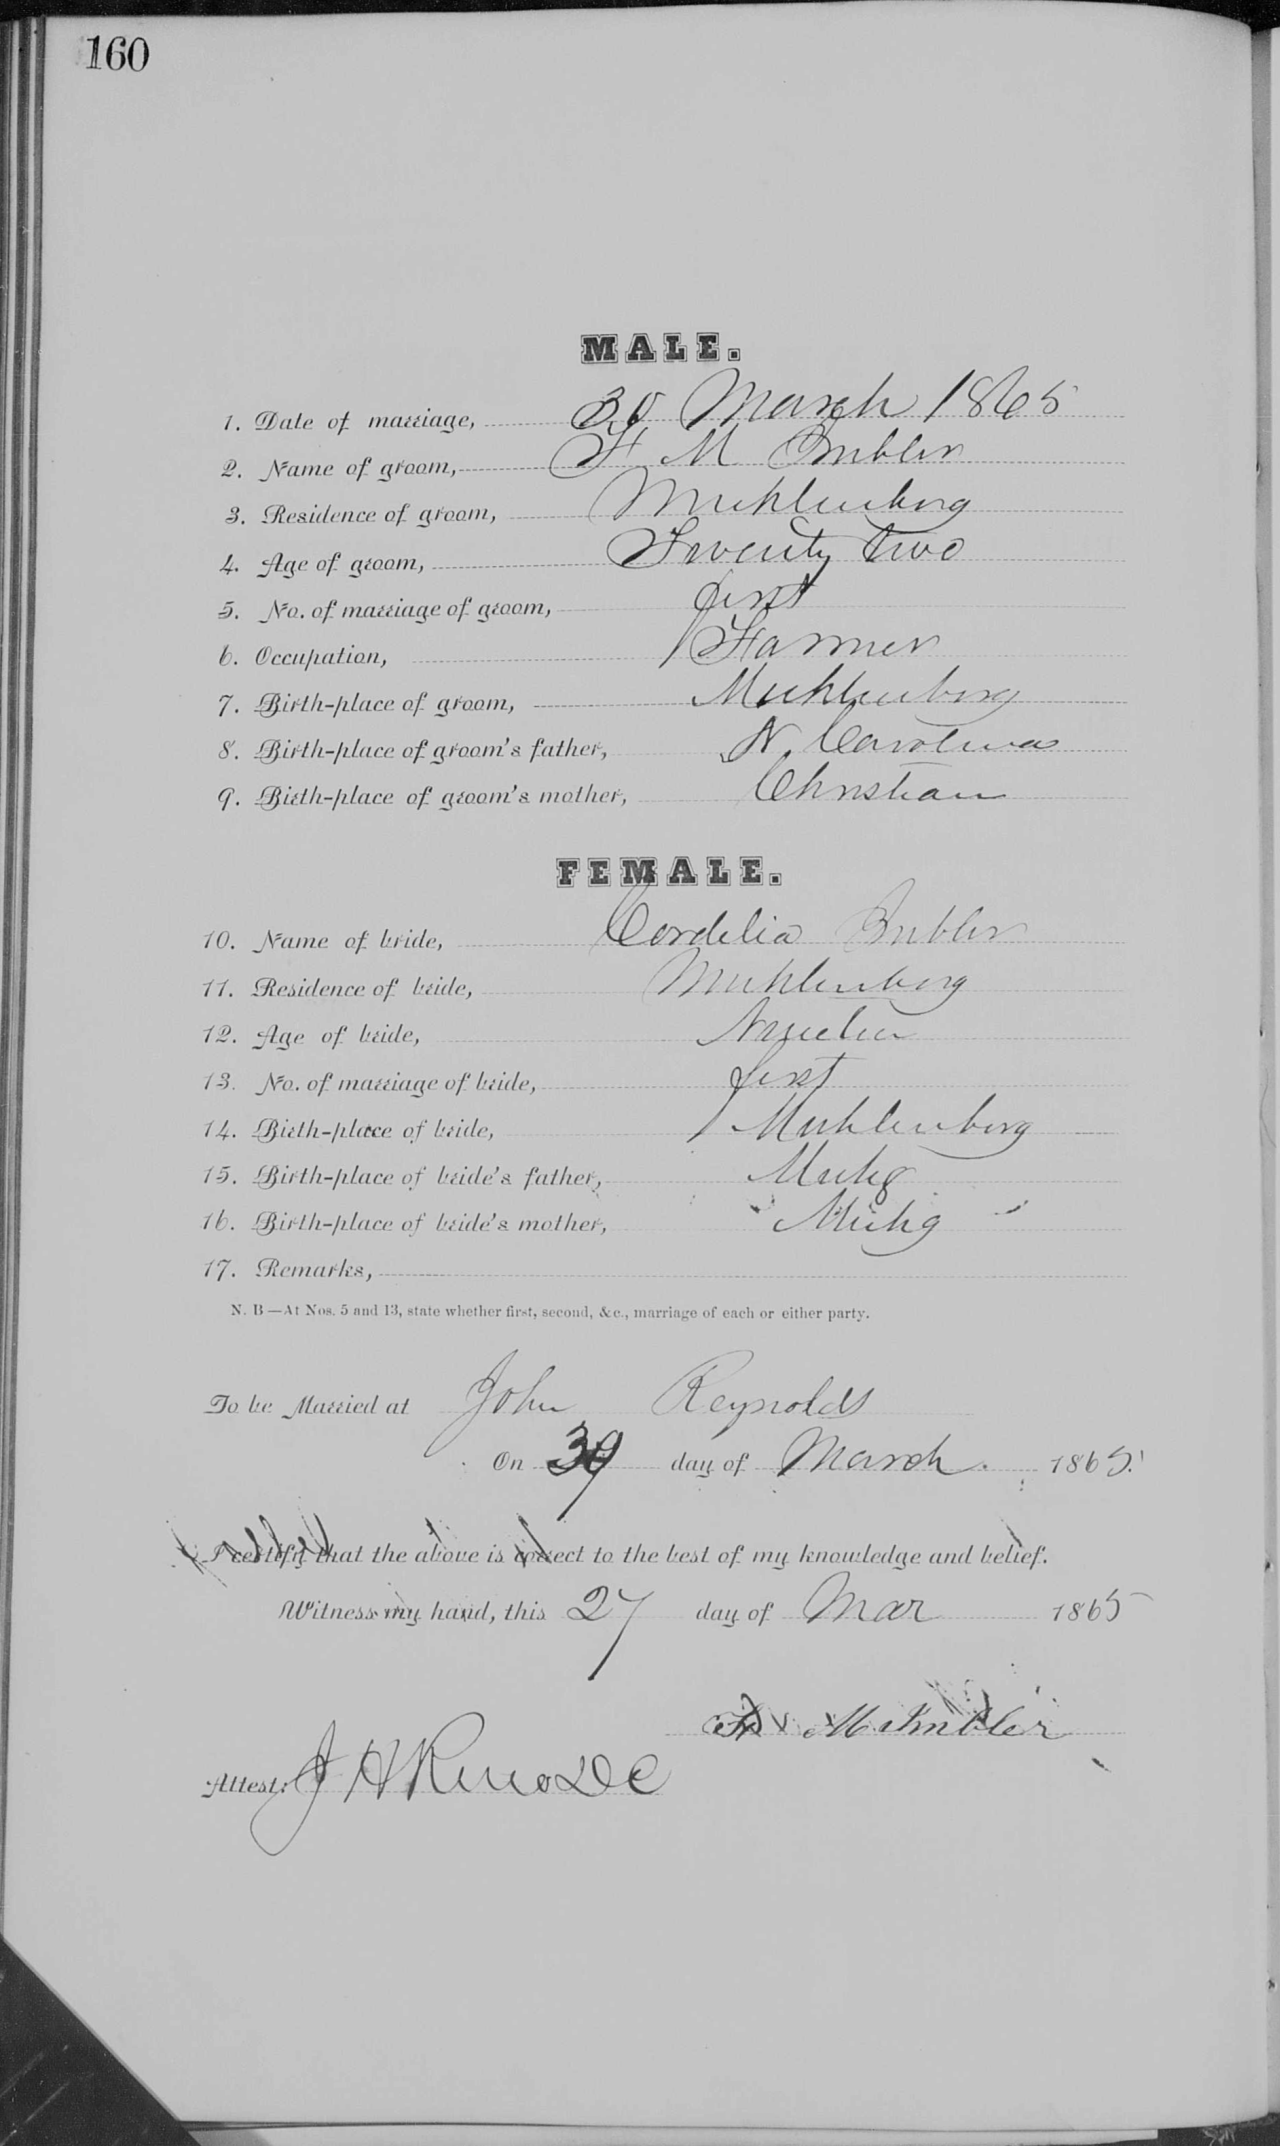 160
MALE.
1. Date of marriage, 30 March 1865
2. Name of groom, F M Imbler
3. Residence of groom, Muhlenberg
4. Age of groom, Twenty two
5. No. of marriage of groom, first
6. Occupation, Farmer
7. Birth-place of groom, Muhlenberg
8. Birth-place of groom's father, N. Carolina
9. Birth-place of groom's mother, Christian
FEMALE.
10. Name of bride, Cordelia Imbler
11. Residence of bride, Muhlenberg
12. Age of bride,
13. No. of marriage of bride, first
14. Birth-place of bride, Muhlenberg
15. Birth-place of bride's father, Muhg
16. Birth-place of bride's mother, Muhg
17. Remarks,
N. B—At Nos. 5 and 13, state whether first, second, &c., marriage of each or either party.
To be Married at John Reynolds
On day of March 1865.
I certify that the above is correct to the best of my knowledge and belief.
Witness my hand, this 27 day of Mar 1865
F M Imbler
Attest: J H Reno DC